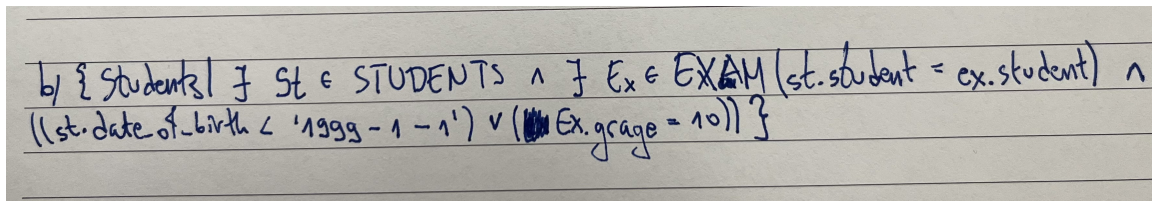 b) { Students| ∃ St ∈ STUDENTS ∧ ∃ Ex ∈ EXAM (st.student = ex.student) ∧
((st.date_of_birth < '1999-1-1') ∨ (Ex.grage = 10)) }